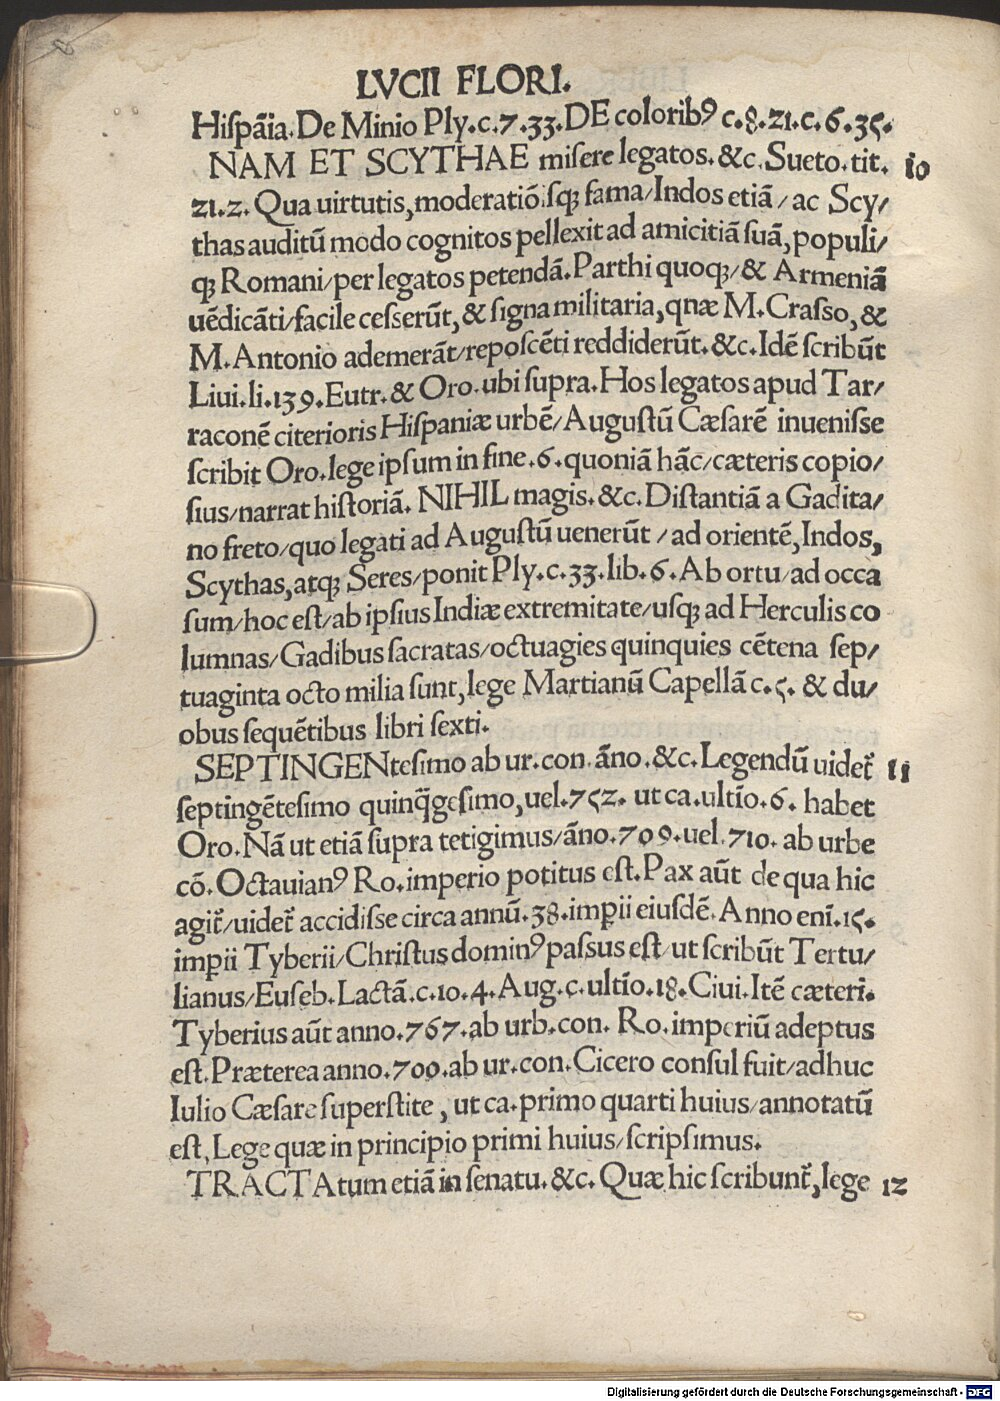 LVCII FLORI.
Hiſpãia.De Minio Ply.c.7.33.DE coloribꝰ c.8.21.c.6.35.
NAM ET SCYTHAE miſere legatos.&c.Sueto.tit. 10
21.2.Qua uirtutis,moderatiõiſqꝫ fama/Indos etiã/ac Scy/
thas auditũ modo cognitos pellexit ad amicitiã ſuã,populi/
qꝫ Romani/per legatos petendã.Parthi quoqꝫ/& Armeniã
uẽdicãti/facile ceſſerũt,& ſigna militaria,qnæ M.Craſſo,&
M.Antonio ademerãt/repoſcẽti reddiderũt.&c.Idẽ ſcribũt
Liui.li.139.Eutr.& Oro.ubi ſupra.Hos legatos apud Tar/
raconẽ citerioris Hiſpaniæ urbẽ/Auguſtũ Cæſarẽ inueniſſe
ſcribit Oro.lege ipſum in fine.6.quoniã hãc/cæteris copio/
ſius/narrat hiſtoriã. NIHIL magis.&c.Diſtantiã a Gadita/
no freto/quo legati ad Auguſtũ uenerũt/ad orientẽ,Indos,
Scythas,atqꝫ Seres/ponit Ply.c.33.lib.6.Ab ortu/ad occa
ſum/hoc eſt/ab ipſius Indiæ extremitate/uſqꝫ ad Herculis co
lumnas/Gadibus ſacratas/octuagies quinquies cẽtena ſep/
tuaginta octo milia ſunt,lege Martianũ Capellã c.5.& du/
obus ſequẽtibus libri ſexti.
SEPTINGENteſimo ab ur.con.ãno.&c.Legendũ uidet᷑ 11
ſeptingẽteſimo quinq̃geſimo,uel.752. ut ca.ultĩo.6. habet
Oro.Nã ut etiã ſupra tetigimus/ãno.709.uel.710.ab urbe
cõ.Octauianꝰ Ro.imperio potitus eſt.Pax aũt de qua hic
agit᷑/uidet᷑ accidiſſe circa annũ.38.impii eiuſdẽ.Anno enĩ.15.
impii Tyberii/Chriſtus dominꝰ paſſus eſt/ut ſcribũt Tertu/
lianus/Euſeb.Lactã.c.10.4.Aug.c.ultĩo.18.Ciui.Itẽ cæteri.
Tyberius aũt anno.767.ab urb.con. Ro.imperiũ adeptus
eſt.Præterea anno.700.ab ur.con.Cicero conſul fuit/adhuc
Iulio Cæſare ſuperſtite,ut ca.primo quarti huius/annotatũ
eſt,Lege quæ in principio primi huius/ſcripſimus.
TRACTAtum etiã in ſenatu.&c. Quæ hic ſcribunt᷑,lege 12
Digitalisierung gefördert durch die Deutsche Forschungsgemeinschaft - DFG